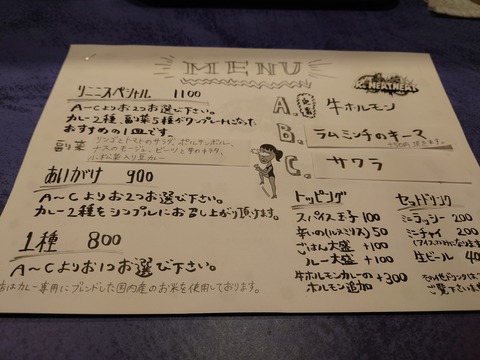 MENU
リニスペシャル 1100
A〜Cよりお2つお選び下さい。
カレー2種、副菜5種がワンプレートになった
おすすめの1皿です。
副菜 リンゴとトマトのサラダ、ポルサンボル、
あいがけ 900
A〜Cよりお2つお選び下さい。
カレー2種をシンプルにお召し上がり頂けます。
1種 800
A〜Cよりお1つお選び下さい。
店はカレー専用にブレンドした国内産のお米を使用しております。
A. 牛ホルモン
B. ラムミンチのキーマ
C. サワラ
トッピング
スパイス玉子 100
辛いの(ルスミリス) 50
ごはん大盛 +100
ルー大盛 +100
牛ホルモンカレーの +300
ホルモン追加
セットドリンク
ミニラッシー 200
ミニチャイ 200
生ビール